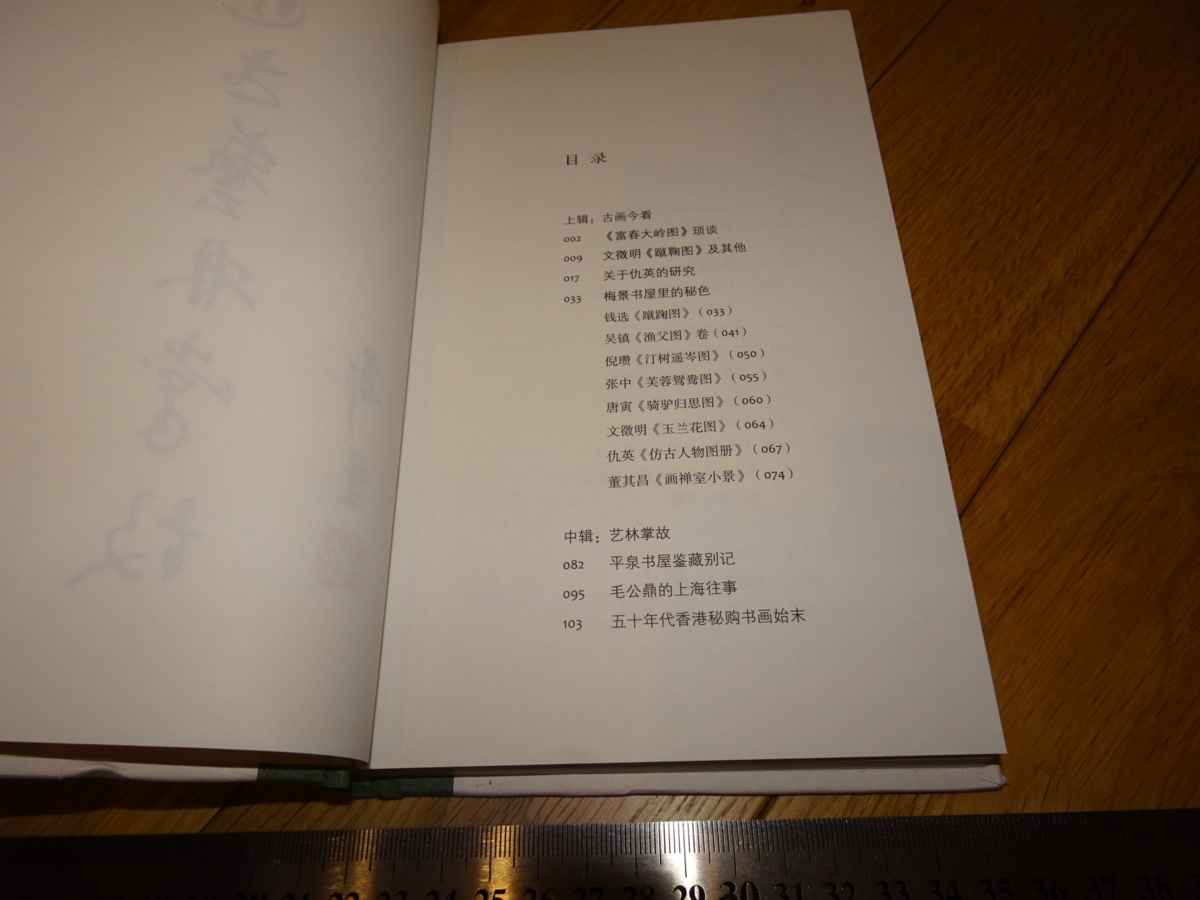 目 录
上辑：古画今看
002 《富春大岭图》琐谈
009 文徵明《蹴鞠图》及其他
017 关于仇英的研究
033 梅景书屋里的秘色
钱选《蹴踘图》（033）
吴镇《渔父图》卷（041）
倪瓒《汀树遥岑图》（050）
张中《芙蓉鸳鸯图》（055）
唐寅《骑驴归思图》（060）
文徵明《玉兰花图》（064）
仇英《仿古人物图册》（067）
董其昌《画禅室小景》（074）
中辑：艺林掌故
082 平泉书屋鉴藏别记
095 毛公鼎的上海往事
103 五十年代香港秘购书画始末
22 23 24 25 26 27 28 29 30 31 32 33 34 35 36 37 38